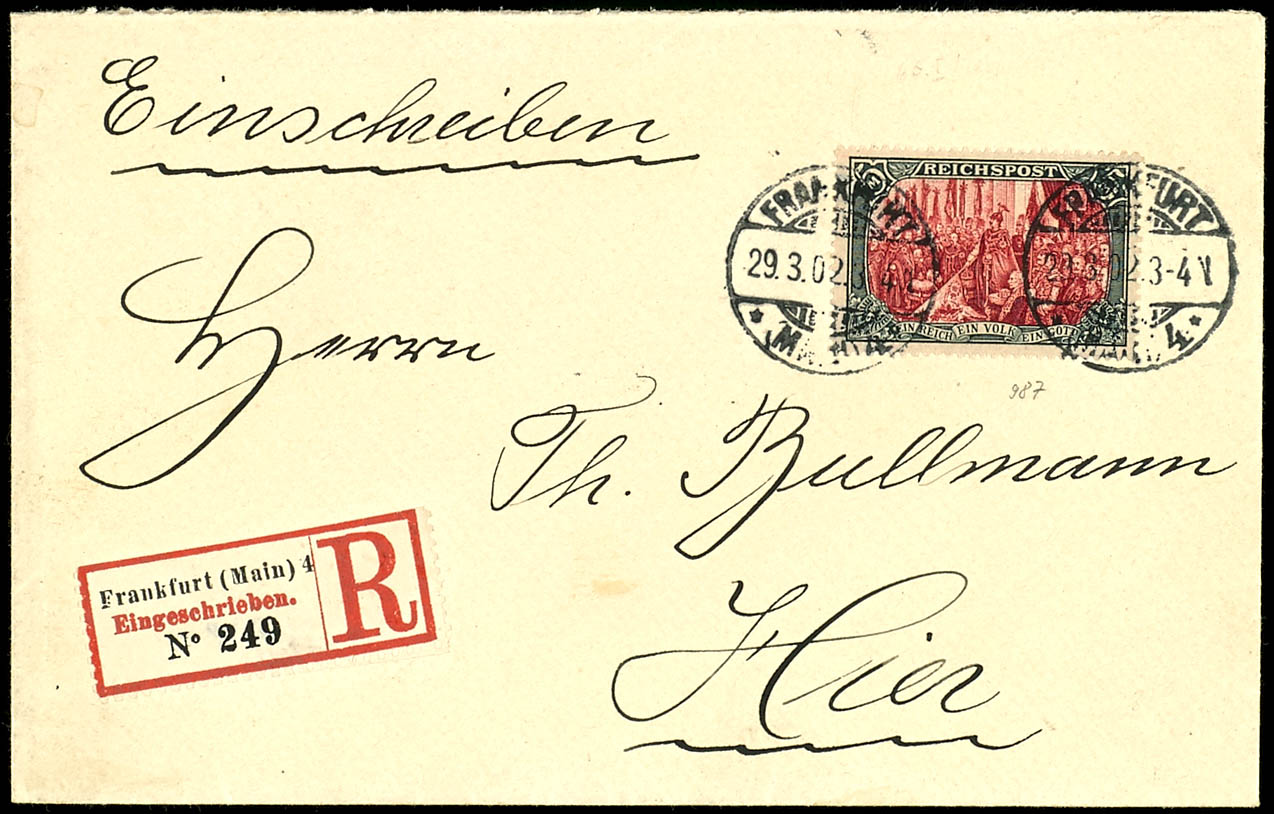 Einschreiben
REICHSPOST
5
EIN REICH EIN VOLK EIN GOTT
FRANKFURT
29.3.02.3-4N
* MAIN 4 *
FRANKFURT
29.3.02.3-4N
* MAIN 4 *
987
Herrn
Th. Bullmann
Frankfurt (Main) 4
Eingeschrieben.
Nº 249
R
Hier